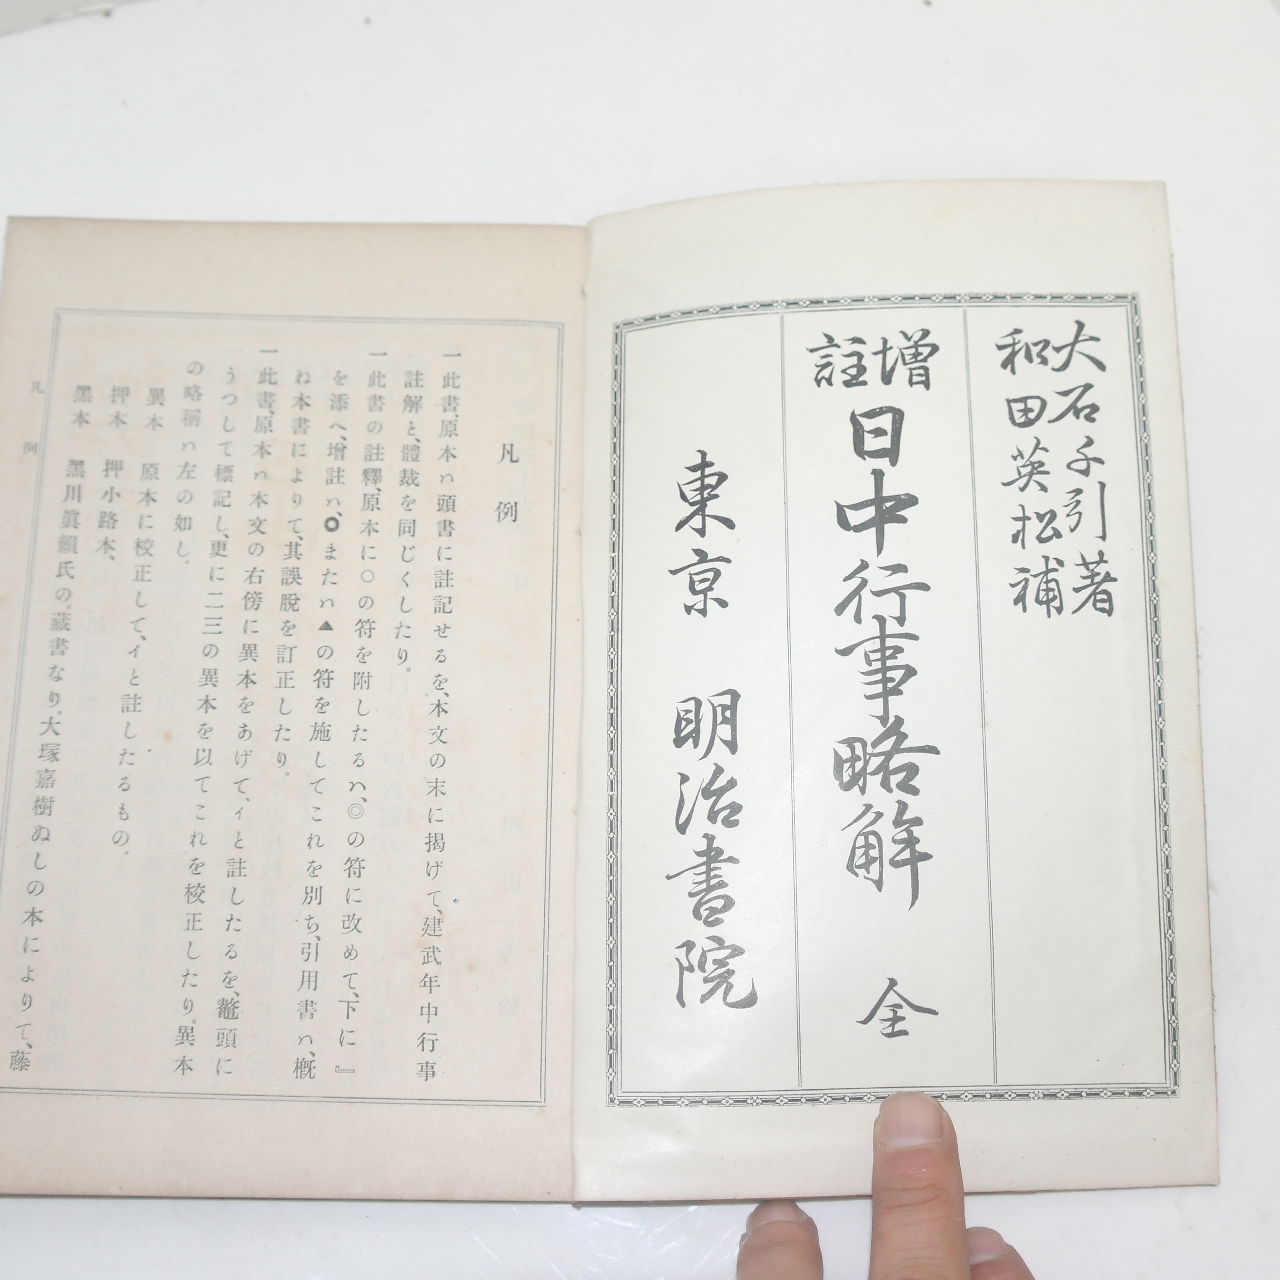 大石千引著
和田英松補
增註 日中行事略解 全
東京 明治書院
凡例
一此書、原本ハ頭書に註記せるを、本文の末に揭げて、建武年中行事
註解と、體裁を同じくしたり。
一此書の註釋、原本に○の符を附したるハ、◎の符に改めて、下に』
を添へ、增註ハ、○またハ▲の符を施してこれを別ち、引用書ハ、槪
ね本書によりて、其誤脫を訂正したり。
一此書、原本ハ本文の右傍に異本をあげて、イと註したるを、鼇頭に
うつして標記し、更に二三の異本を以てこれを校正したり。異本
の略稱ハ左の如し。
異本 原本に校正して、イと註したるもの。
押本 押小路本、
黑本 黑川眞賴氏の、藏書なり。大塚嘉樹ぬしの本によりて、藤
凡例